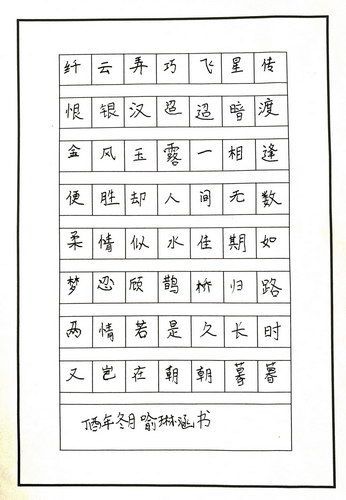 纤云弄巧飞星传
恨银汉迢迢暗渡
金风玉露一相逢
便胜却人间无数
柔情似水佳期如
梦忍顾鹊桥归路
两情若是久长时
又岂在朝朝暮暮
丁酉年冬月喻琳涵书